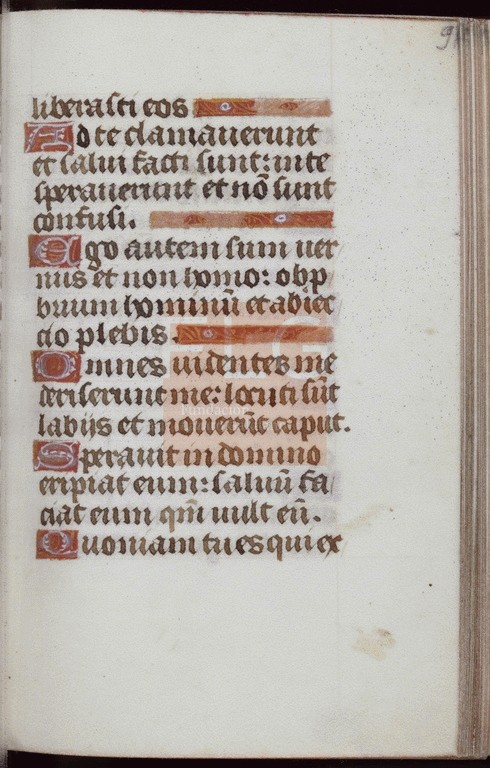 9
liberasti eos
Ad te clamauerunt
et salui facti sunt: in te
sperauerunt et nõ sunt
confusi.
Ego autem sum uer
mis et non homo: obp
brium hominũ et abiec
cio plebis.
Omnes uidentes me
deriserunt me: locuti sũt
labijs et mouerũt caput.
Sperauit in domino
eripiat eum: saluũ fa
ciat eum qm̃ uult eũ.
Quoniam tu es qui ex
Fundación